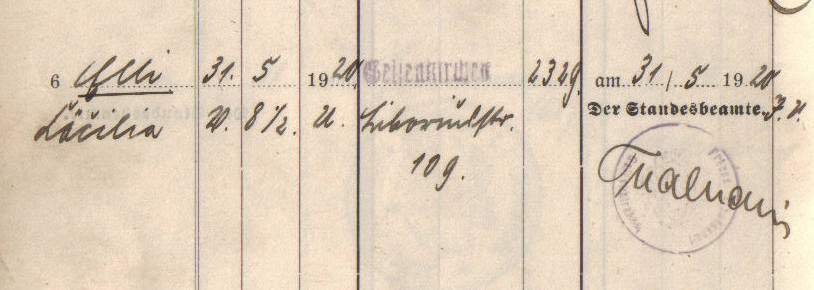 6 Elli 31. 5 1920 Gelsenkirchen 2329. am 31/5 1920
Cäcilia V. 8 1/2. U. Liboriusstr. Der Standesbeamte. J. V.
109.